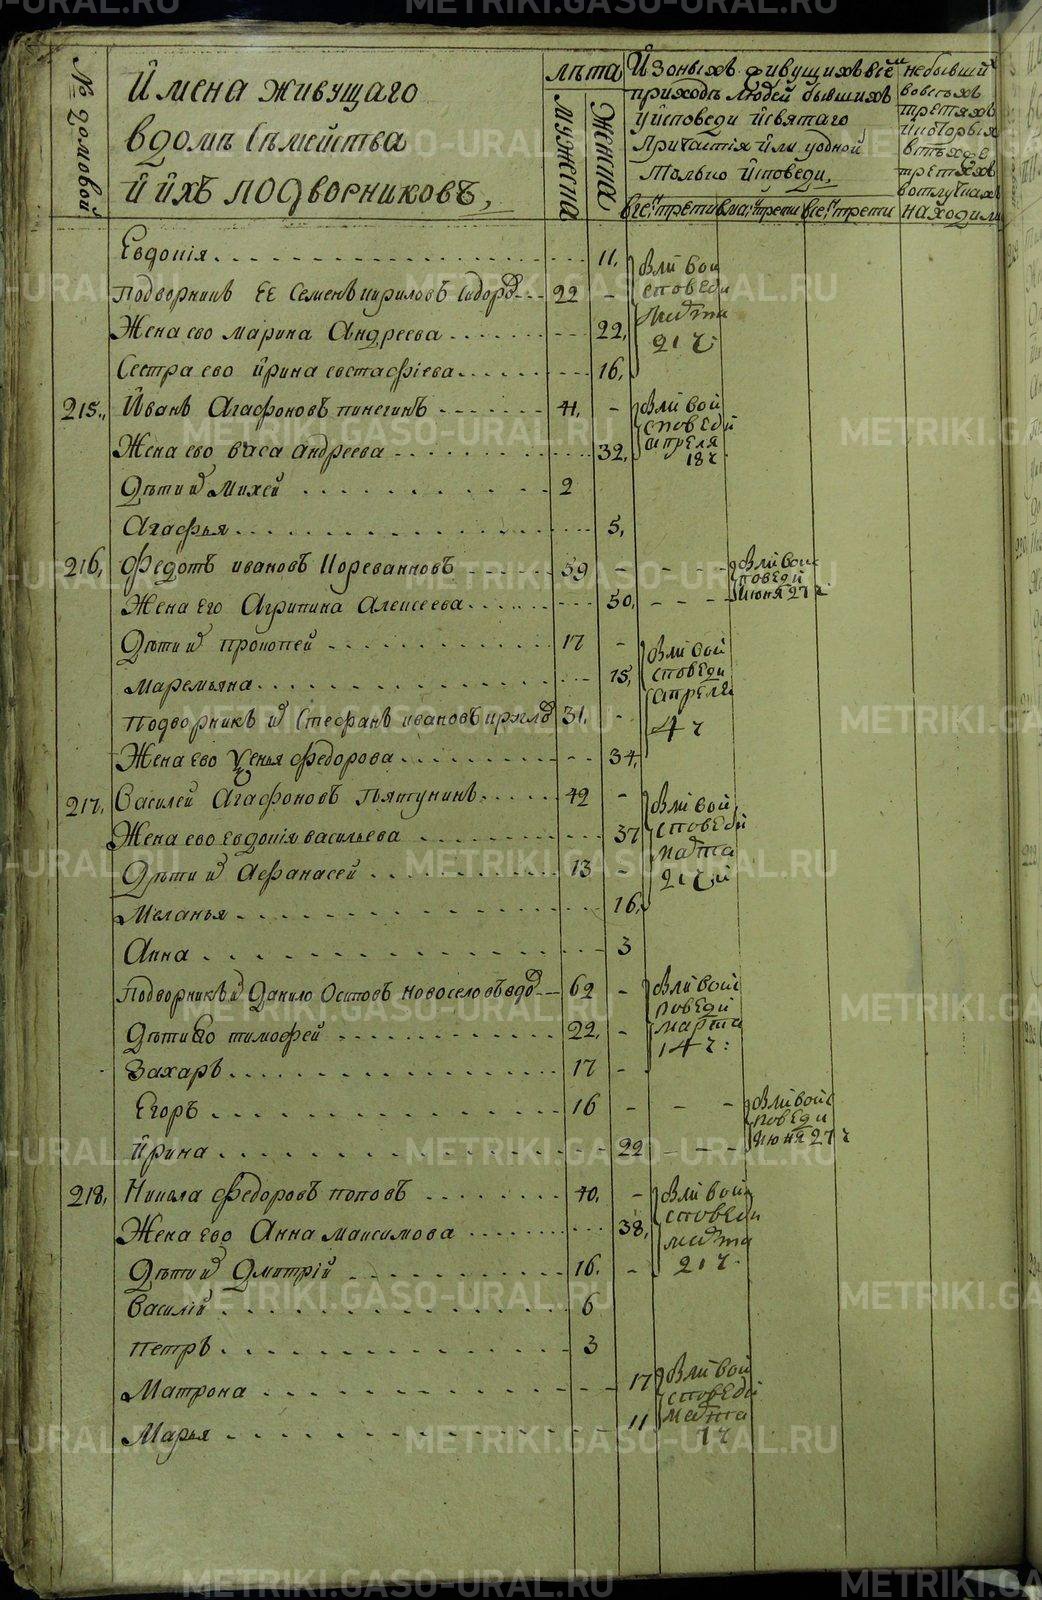 № домовой
Имена живущаго
вдомѣ Семейства
И ихъ подворниковъ,
лѣта
мужеска
Женска
Изоныхъ живущихъ всем
приходѣ людей бывших
уисповеди исвятаго
Причастія или уодной
только исповеди,
небывший
вовсехъ
третяхъ
находили
Евдокія 11,
Подворникъ ее Семенъ кириловъ 22 - были вой
споведи
Жена ево марина Андреева 22, марта
21 ч
Сестра ево ирина евстафіева 16,
215., Иванъ Агафоновъ пинегинъ 41, - были вой
споведи
апреля
18 ч
Жена ево васа андреева 32,
Дѣти и Михей 2
Агафья 5,
216, Федотъ ивановъ Кореванковъ 59 - были вои
споведи
июня 27 ч
Жена Его Агрипина Алексеева 50,
Дѣти и прокопей 17 - были вой
споведи
апреля
4 ч
Маремьяна 15,
Подворникъ и Стефанъ ивановъ 31, -
Жена ево федорова 34,
217, Василей Агафоновъ Пьятунинъ 42 - были вой
споведи
марта
21
Жена ево евдокія васильева 37
Дѣти и Афанасей 13 -
Меланья 16,
Анна 3
Подворникъ и Данило Осиповъ новоселовъ вдо 62 - были войс
поведи
марта
14 ч:
Дѣти Ево тимофей 22, -
Захаръ 17 -
Егоръ 16 - были войс
поведи
июня 27 ч
ирина 22
218, Никола федоровъ поповъ 40, - были вой
споведи
марта
21 ч.
Жена ево Анна максимова 38,
Дѣти и Дмитрій 16. -
Василій 6
петръ 3
Матрона 17 были вой
споведи
марта
7 ч
Марья 11
METRIKI.GASO-URAL.RU